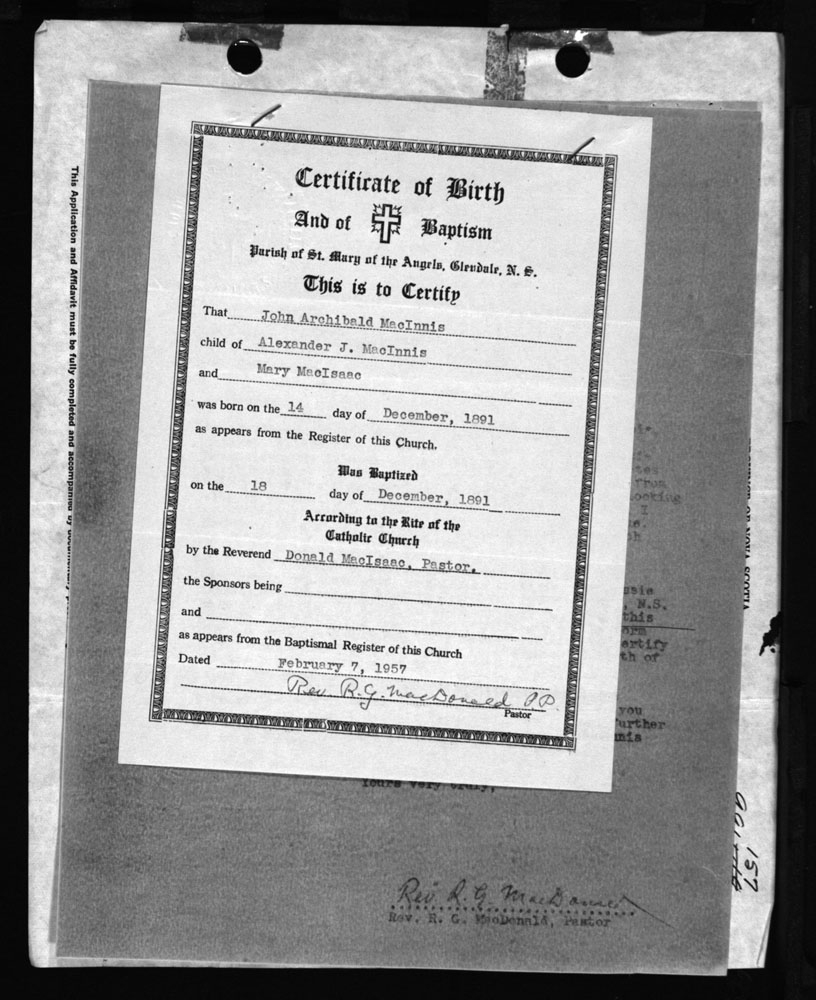 This Application and Affidavit must be fully completed and accompanied by
Certificate of Birth
And of Baptism
Parish of St. Mary of the Angels, Glendale, N. S.
This is to Certify
That John Archibald MacInnis
child of Alexander J. MacInnis
and Mary MacIsaac
was born on the 14 day of December, 1891
as appears from the Register of this Church.
Was Baptized
on the 18 day of December, 1891
According to the Rite of the
Catholic Church
by the Reverend Donald MacIsaac, Pastor.
the Sponsors being
and
as appears from the Baptismal Register of this Church
Dated February 7, 1957
Rev. R. G. MacDonald P.P.
Pastor
OF NOVA SCOTIA
N.S.
this
you
Yours very truly,
Rev. R. G. MacDonald
Rev. R. G. MacDonald, Pastor
157